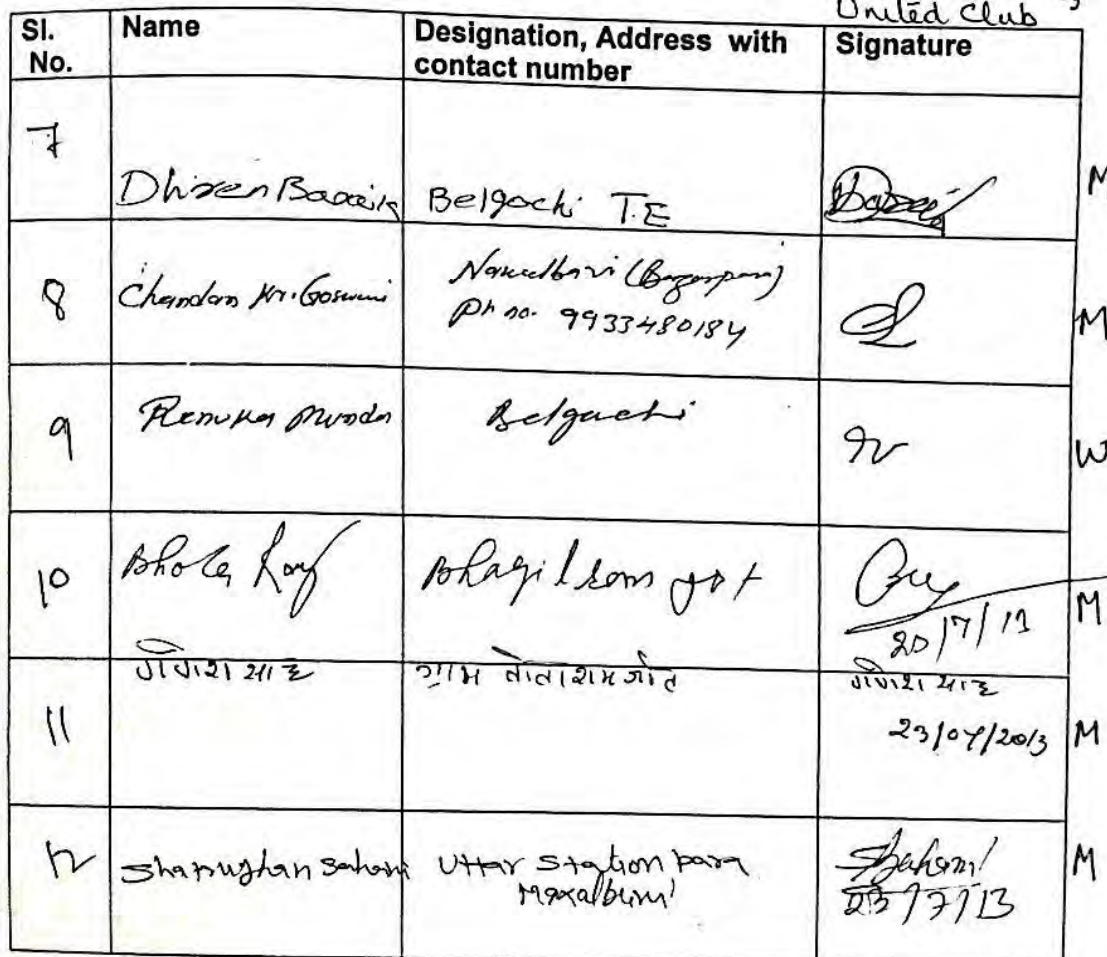 United Club
Sl. No. Name Designation, Address with contact number Signature
7 Dhiren Baraik Belgachi T.E M
8 Chandan Kr. Goswami Naxalbari (Bazarpara)
Ph no. 9933480184 M
9 Renuka Munda Belgachi W
10 Bhola Roy M
20/7/13
11 गणेश साह ग्राम तोताराम जोत गणेश साह
23/07/2013 M
12 Shatrughan Sahani Uttar Station para Sahani M
Naxalbari 23/7/13